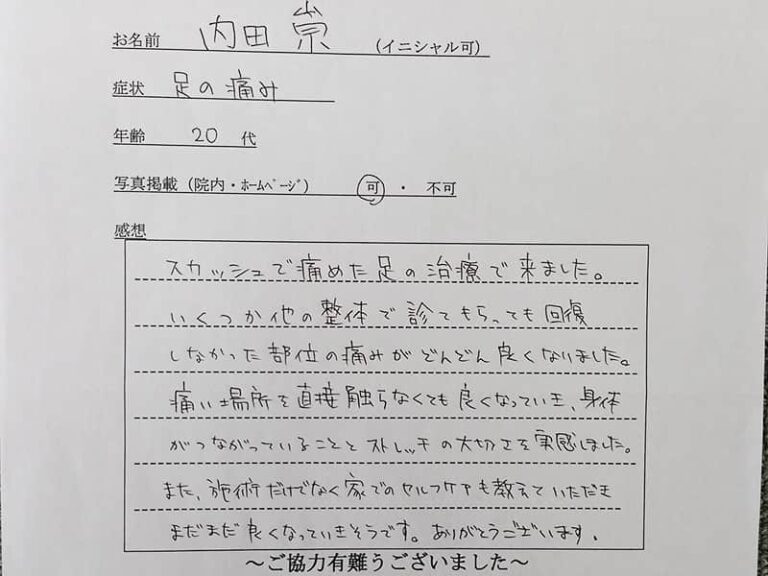 お名前 内田 崇 (イニシャル可)
症状 足の痛み
年齢 20 代
写真掲載(院内・ﾎｰﾑﾍﾟｰｼﾞ) 可 ・ 不可
感想
スカッシュで痛めた足の治療で来ました。
いくつか他の整体で診てもらっても回復
しなかった部位の痛みがどんどん良くなりました。
痛い場所を直接触らなくても良くなっていき、身体
がつながっていることとストレッチの大切さを実感しました。
また、施術だけでなく家でのセルフケアも教えていただき
まだまだ良くなっていきそうです。ありがとうございます。
～ご協力有難うございました～